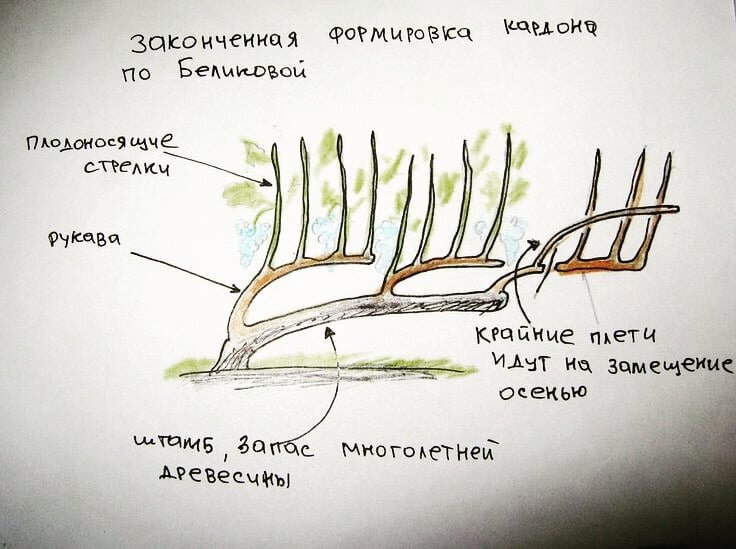 Законченная формировка кардона
по Беликовой
плодоносящие
стрелки
рукава
крайние плети
идут на замещение
осенью
штамб, запас многолетней
древесины